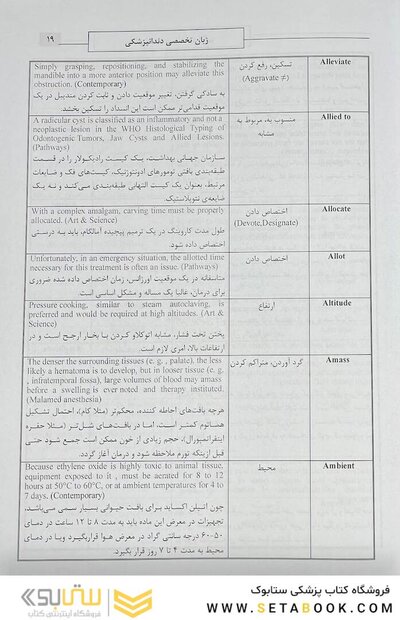 ۱۹
زبان تخصصی دندانپزشکی
Simply grasping, repositioning, and stabilizing the
mandible into a more anterior position may alleviate this
obstruction. (Contemporary)
به سادگی گرفتن، تغییر موقعیت دادن و ثابت کردن مندیبل در یک
موقعیت قدامی‌تر ممکن است این انسداد را تسکین بخشد.
تسکین، رفع کردن
(Aggravate ≠)
Alleviate
A radicular cyst is classified as an inflammatory and not a
neoplastic lesion in the WHO Histological Typing of
Odontogenic Tumors, Jaw Cysts and Allied Lesions.
(Pathways)
سازمان جهانی بهداشت، یک کیست رادیکولار را در قسمت
طبقه‌بندی بافتی تومورهای ادونتوژنیک، کیست‌های فک و ضایعات
مرتبط، بعنوان یک کیست التهابی طبقه‌بندی می‌کند و نه یک
ضایعه‌ی نئوپلاستیک.
منسوب به، مربوط به
مشابه
Allied to
With a complex amalgam, carving time must be properly
allocated. (Art & Science)
طول مدت کاروینگ در یک ترمیم پیچیده آمالگام، باید به درستی
اختصاص داده شود.
اختصاص دادن
(Devote,Designate)
Allocate
Unfortunately, in an emergency situation, the allotted time
necessary for this treatment is often an issue. (Pathways)
متاسفانه در یک موقعیت اورژانس، زمان اختصاص داده شده ضروری
برای درمان، غالبا یک مساله و مشکل اساسی است.
اختصاص دادن
Allot
Pressure cooking, similar to steam autoclaving, is
preferred and would be required at high altitudes. (Art &
Science)
پختن تحت فشار، مشابه اتوکلاو کردن با بخار ارجح است و در
ارتفاعات بالا، امری لازم است.
ارتفاع
Altitude
The denser the surrounding tissues (e. g. , palate), the less
likely a hematoma is to develop, but in looser tissue (e. g.
, infratemporal fossa), large volumes of blood may amass
before a swelling is ever noted and therapy instituted.
(Malamed anesthesia)
هرچه بافت‌های احاطه کننده، محکم‌تر (مثلا کام)، احتمال تشکیل
هماتوم کمتر است، اما در بافت‌های شل‌تر (مثلا حفره
اینفراتمپورال)، حجم زیادی از خون ممکن است جمع شود حتی
قبل ازینکه تورم ملاحظه شود و درمان آغاز گردد.
گرد آوردن، متراکم کردن
Amass
Because ethylene oxide is highly toxic to animal tissue,
equipment exposed to it , must be aerated for 8 to 12
hours at 50°C to 60°C, or at ambient temperatures for 4 to
7 days. (Contemporary)
چون اتیلن اکساید برای بافت حیوانی بسیار سمی می‌باشد،
تجهیزات در معرض این ماده باید به مدت ۸ تا ۱۲ ساعت در دمای
۵۰-۶۰ درجه سانتی گراد در معرض هوا قراربگیرد ویا در دمای
محیط به مدت ۴ تا ۷ روز قرار بگیرد.
محیط
Ambient
ستابوک
فروشگاه اینترنتی کتاب
فروشگاه کتاب پزشکی ستابوک
WWW.SETABOOK.COM